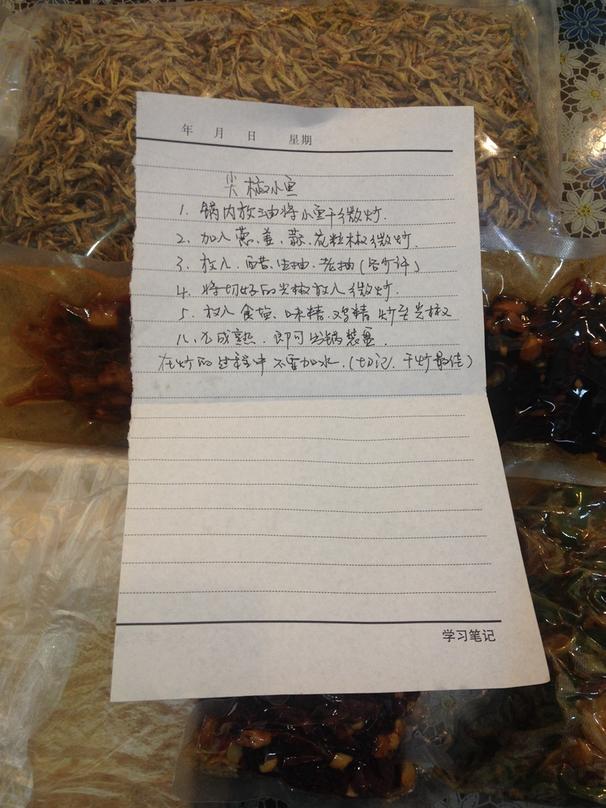 年 月 日 星期
尖椒小鱼
1. 锅内放油将小鱼干微炒.
2. 加入葱、姜、蒜、花粒椒微炒.
3. 放入、醋、生抽、老抽(各少许)
4. 将切好的尖椒放入微炒.
5. 放入食盐、味精、鸡精 炒至尖椒
八、九成熟. 即可出锅装盘.
在炒的过程中不要加水.(切记. 干炒最佳)
学习笔记